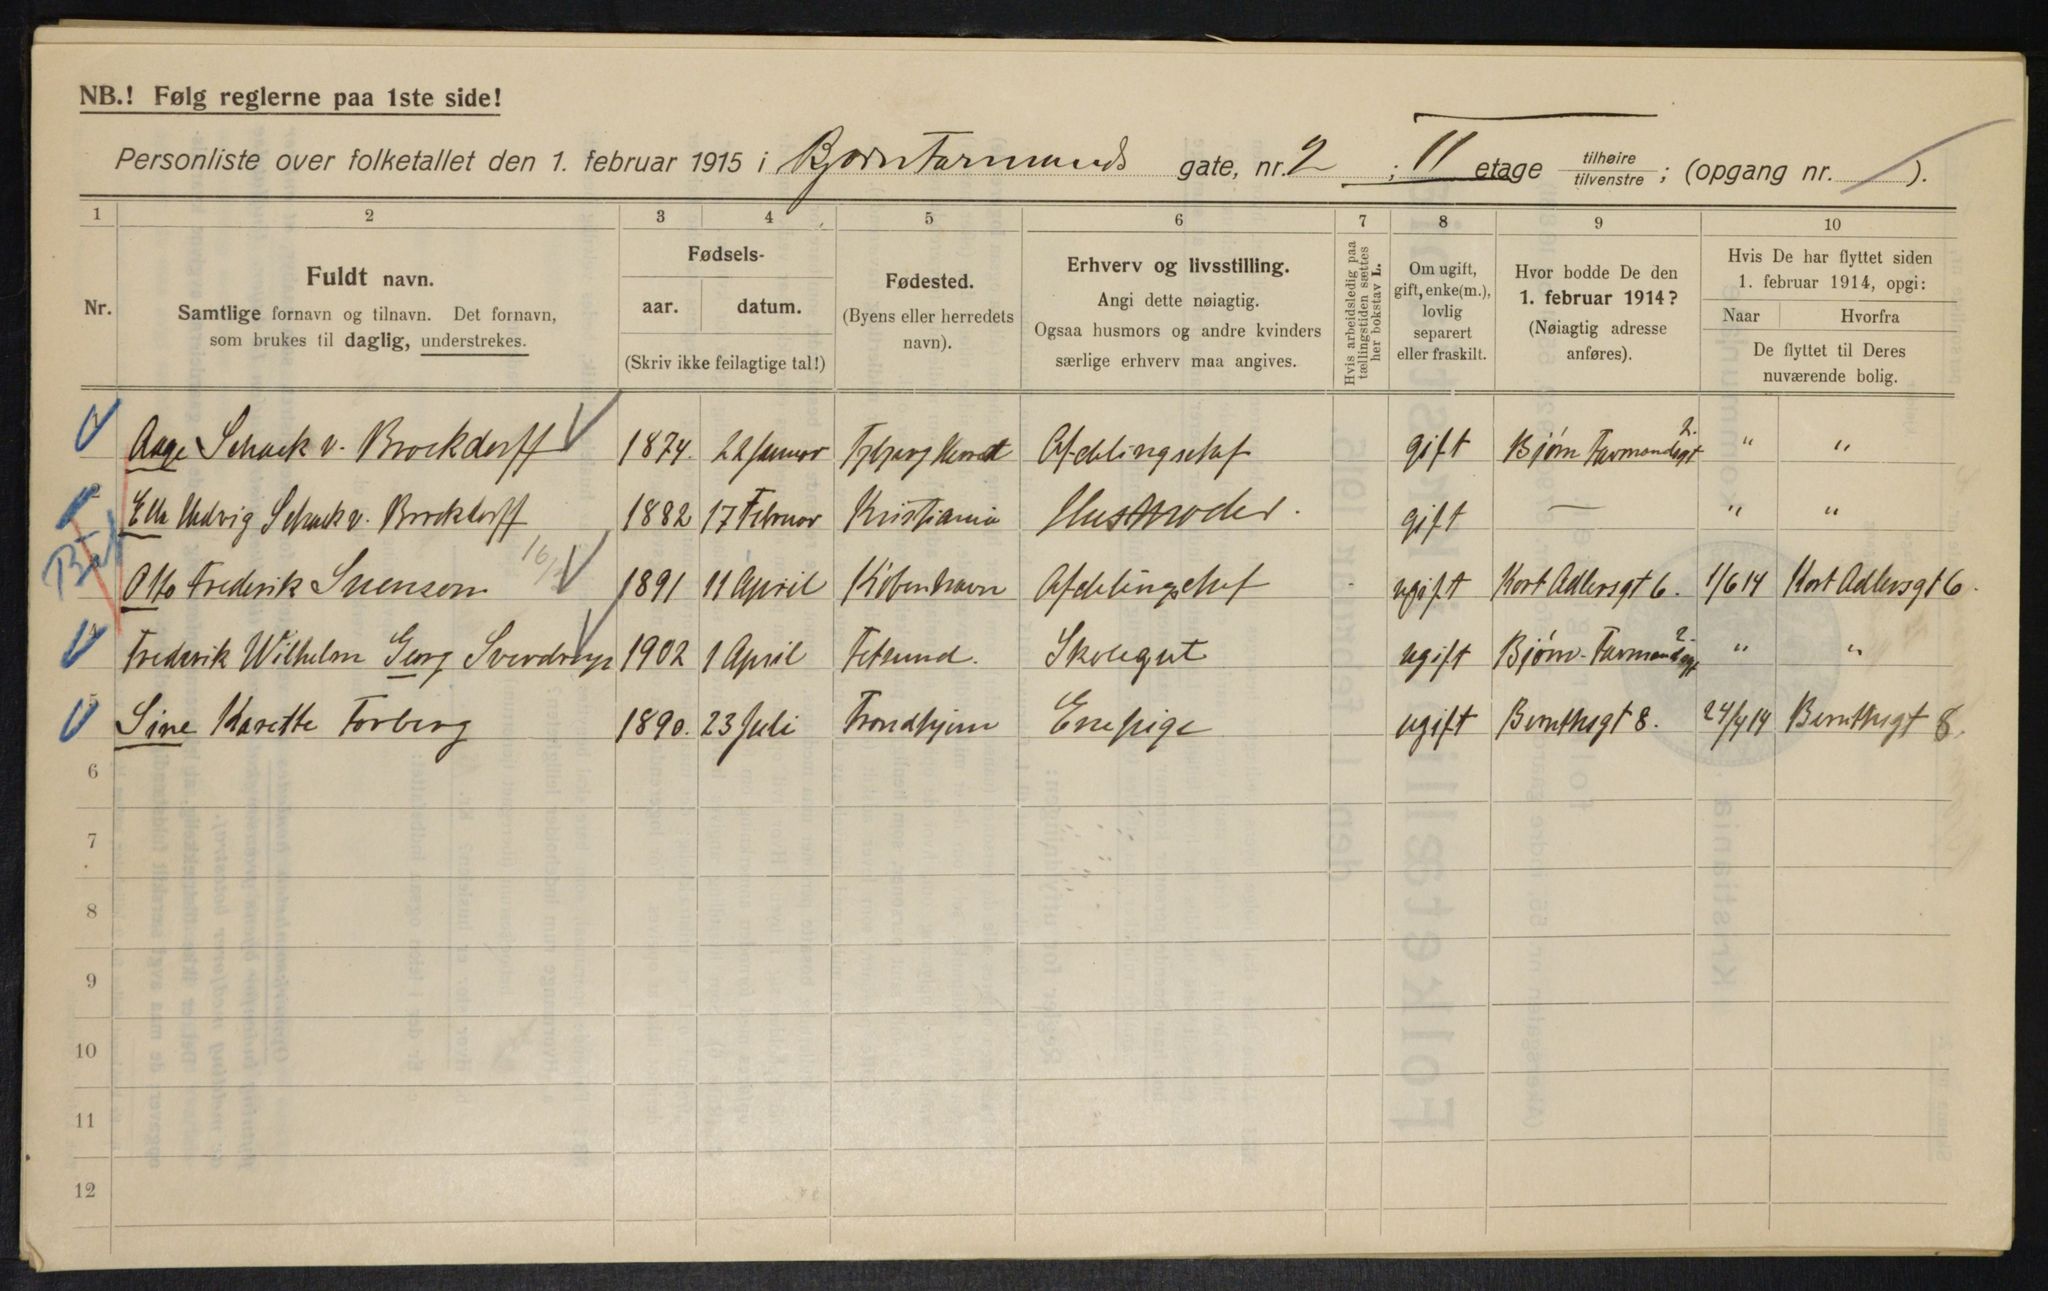 NB.! Følg reglerne paa 1ste side!
Personliste over folketallet den 1. februar 1915 i Bjørn Farmands gate, nr. 2 ; II etage tilhøire tilvenstre ; (opgang nr. ).
1 2 3 4 5 6 7 8 9 10
Nr.
Fuldt navn.
Samtlige fornavn og tilnavn. Det fornavn,
som brukes til daglig, understrekes.
Fødsels-
aar. datum.
(Skriv ikke feilagtige tal!)
Fødested.
(Byens eller herredets
navn).
Erhverv og livsstilling.
Angi dette nøiagtig.
Ogsaa husmors og andre kvinders
særlige erhverv maa angives.
Hvis arbeidsledig paa
tællingstiden sættes
her bokstav L.
Om ugift,
gift, enke(m.),
lovlig
separert
eller fraskilt.
Hvor bodde De den
1. februar 1914?
(Nøiagtig adresse
anføres).
Hvis De har flyttet siden
1. februar 1914, opgi:
Naar Hvorfra
De flyttet til Deres
nuværende bolig.
Aage Schack v. Brockdorff 1874. 22 Januar Afdelingschef gift Bjørn Farmandsgt 2. " "
Ella Hedvig Schack v. Brockdorff 1882 17 Februar Kristiania Husmoder. gift — " "
Otto Frederik Suenson 1891 11 April København Afdelingschef ugift Kort Adlersgt 6. 1/6 14 Kort Adlersgt 6.
Frederik Wilhelm Georg Sverdrup 1902 1 April Fetsund. Skolegut ugift Bjørn-Farmandsgt 2. " "
5 Sine Karette Forberg 1890. 23 Juli Trondhjem Enepige ugift Bernthsgt 8. 24/4 14 Bernthsgt 8.
6
7
8
9
10
11
12